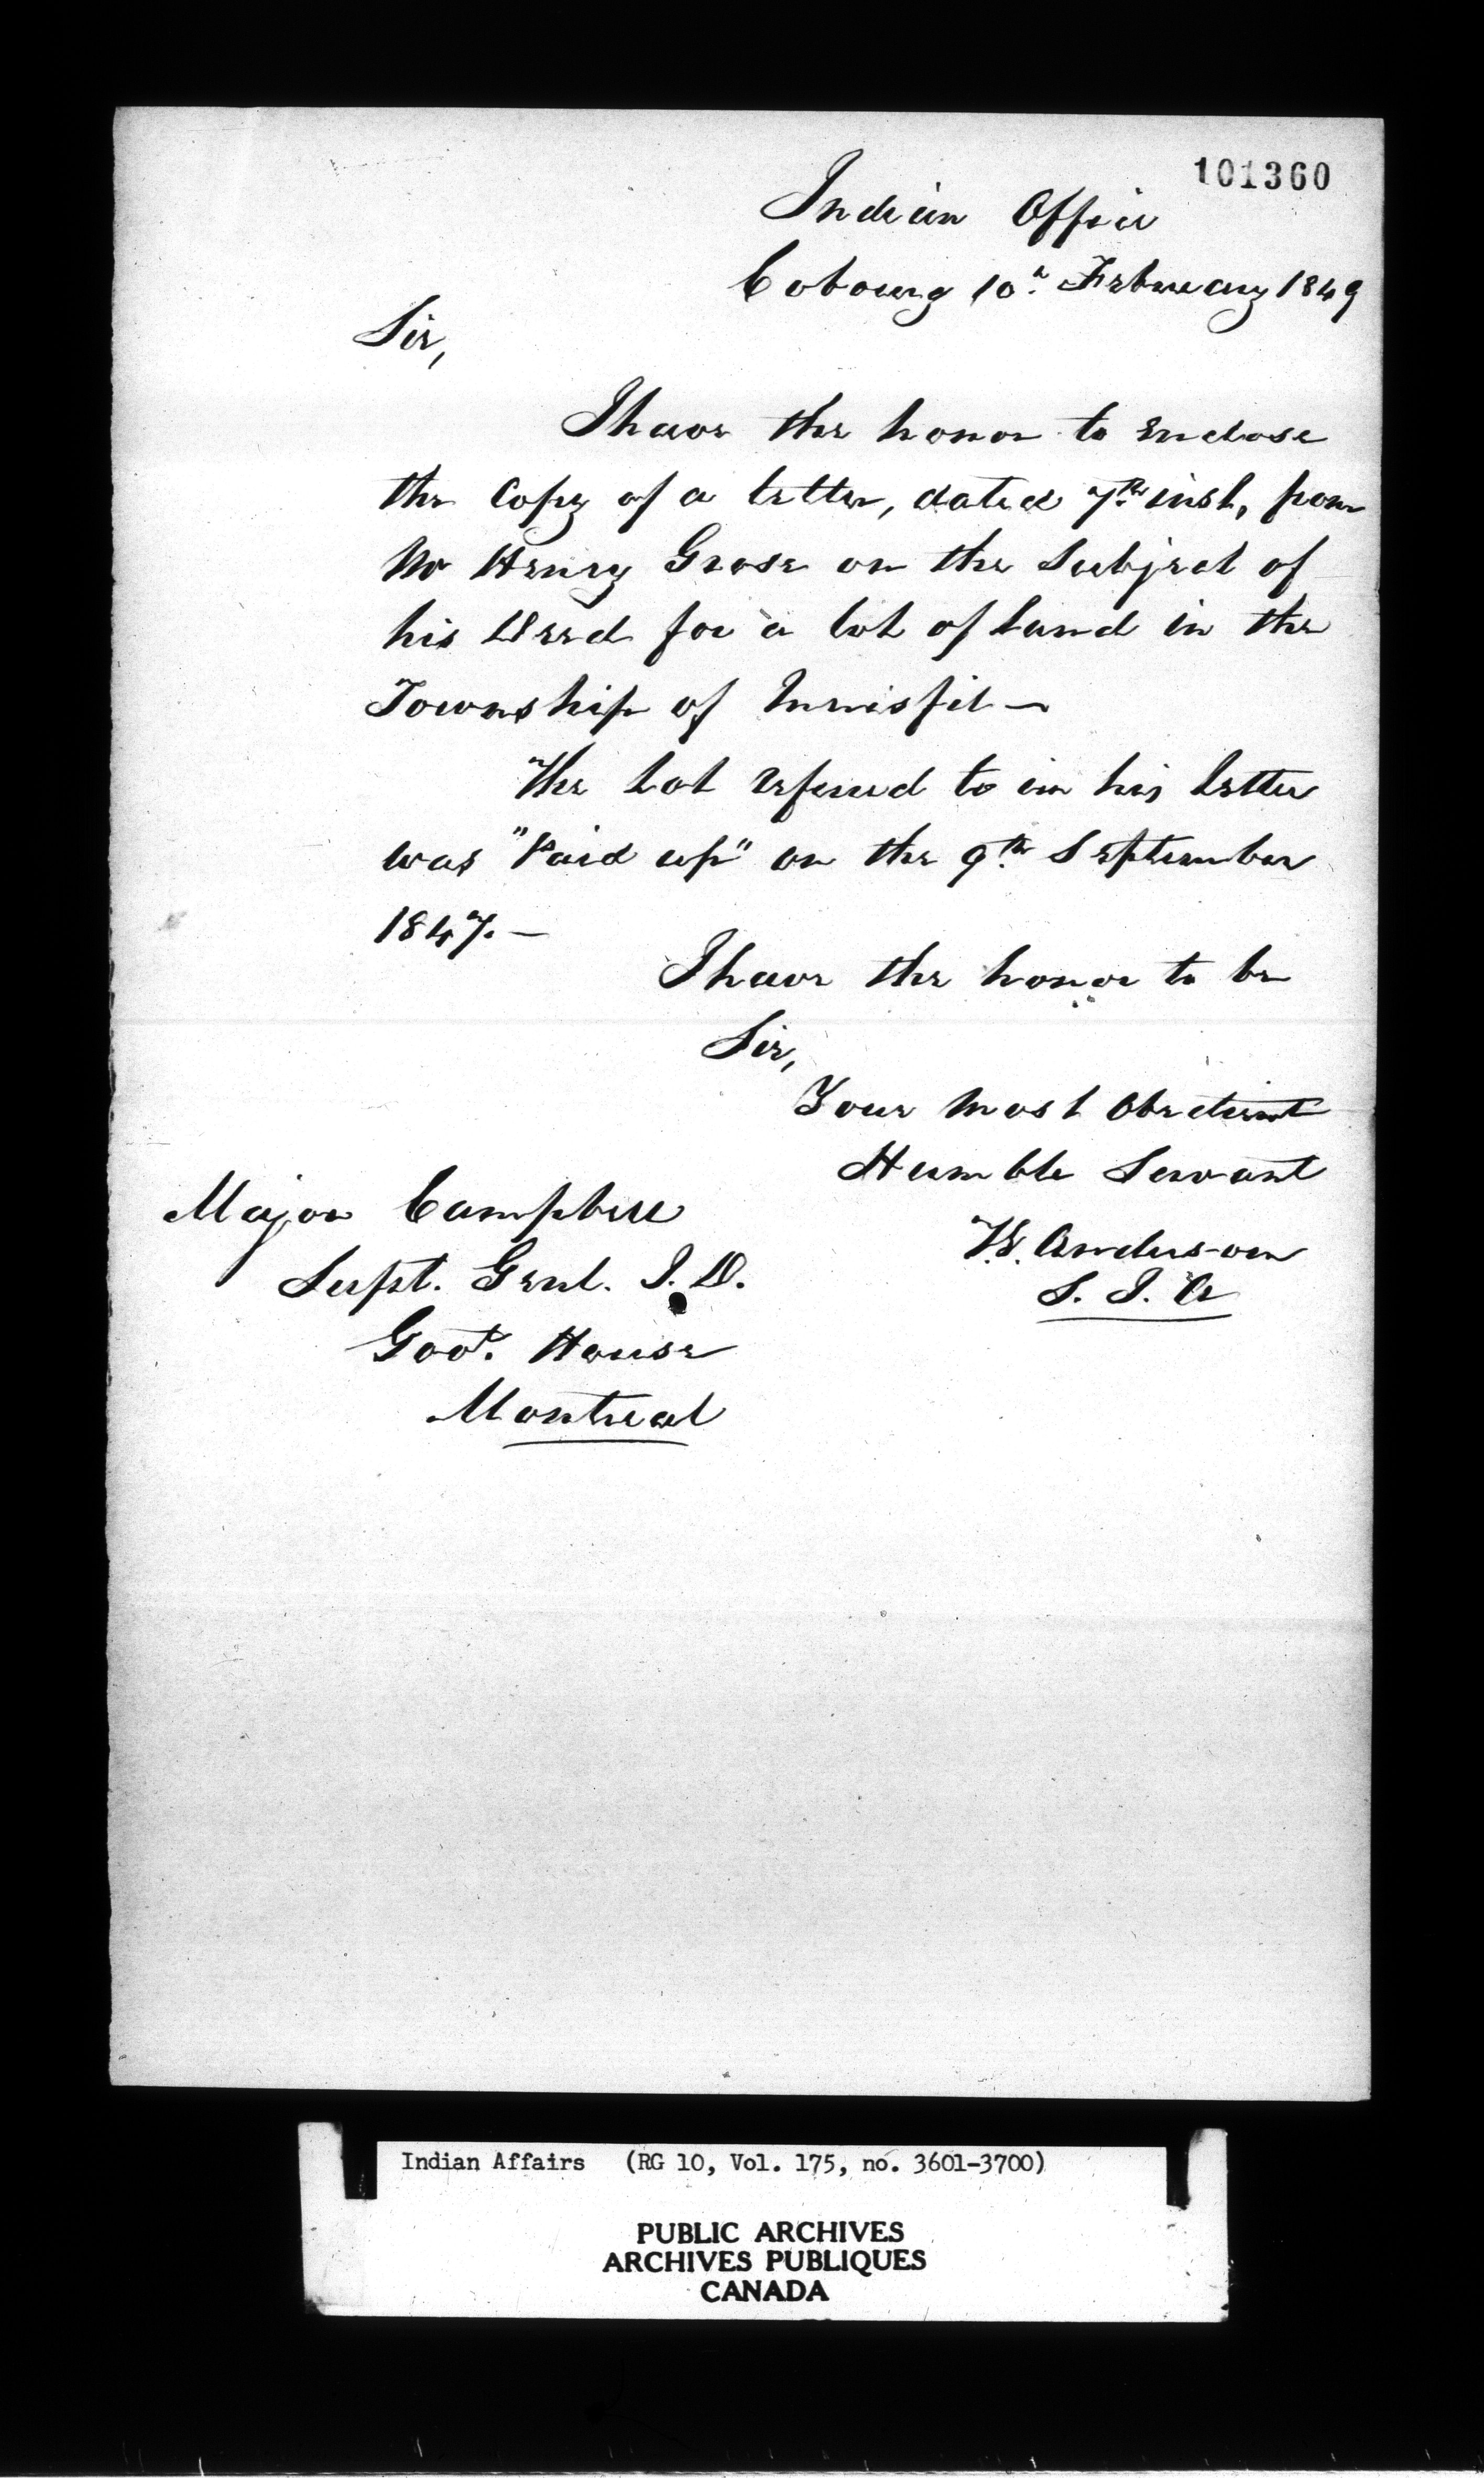 101360
Indian Office
Cobourg 10th February 1849
Sir,
I have the honor to enclose
the Copy of a letter, dated 7th inst, from
Mr Henry Grose on the Subject of
his Deed for a lot of land in the
Township of Innisfil —
The Lot referred to in his letter
was "Paid up" on the 9th September
1847. —
I have the honor to be
Sir,
Your Most Obedient
Humble Servant
Major Campbell
Anderson
Supt. Genl. I. D.
S. I. A
Govt. House
Montreal
Indian Affairs (RG 10, Vol. 175, no. 3601-3700)
PUBLIC ARCHIVES
ARCHIVES PUBLIQUES
CANADA